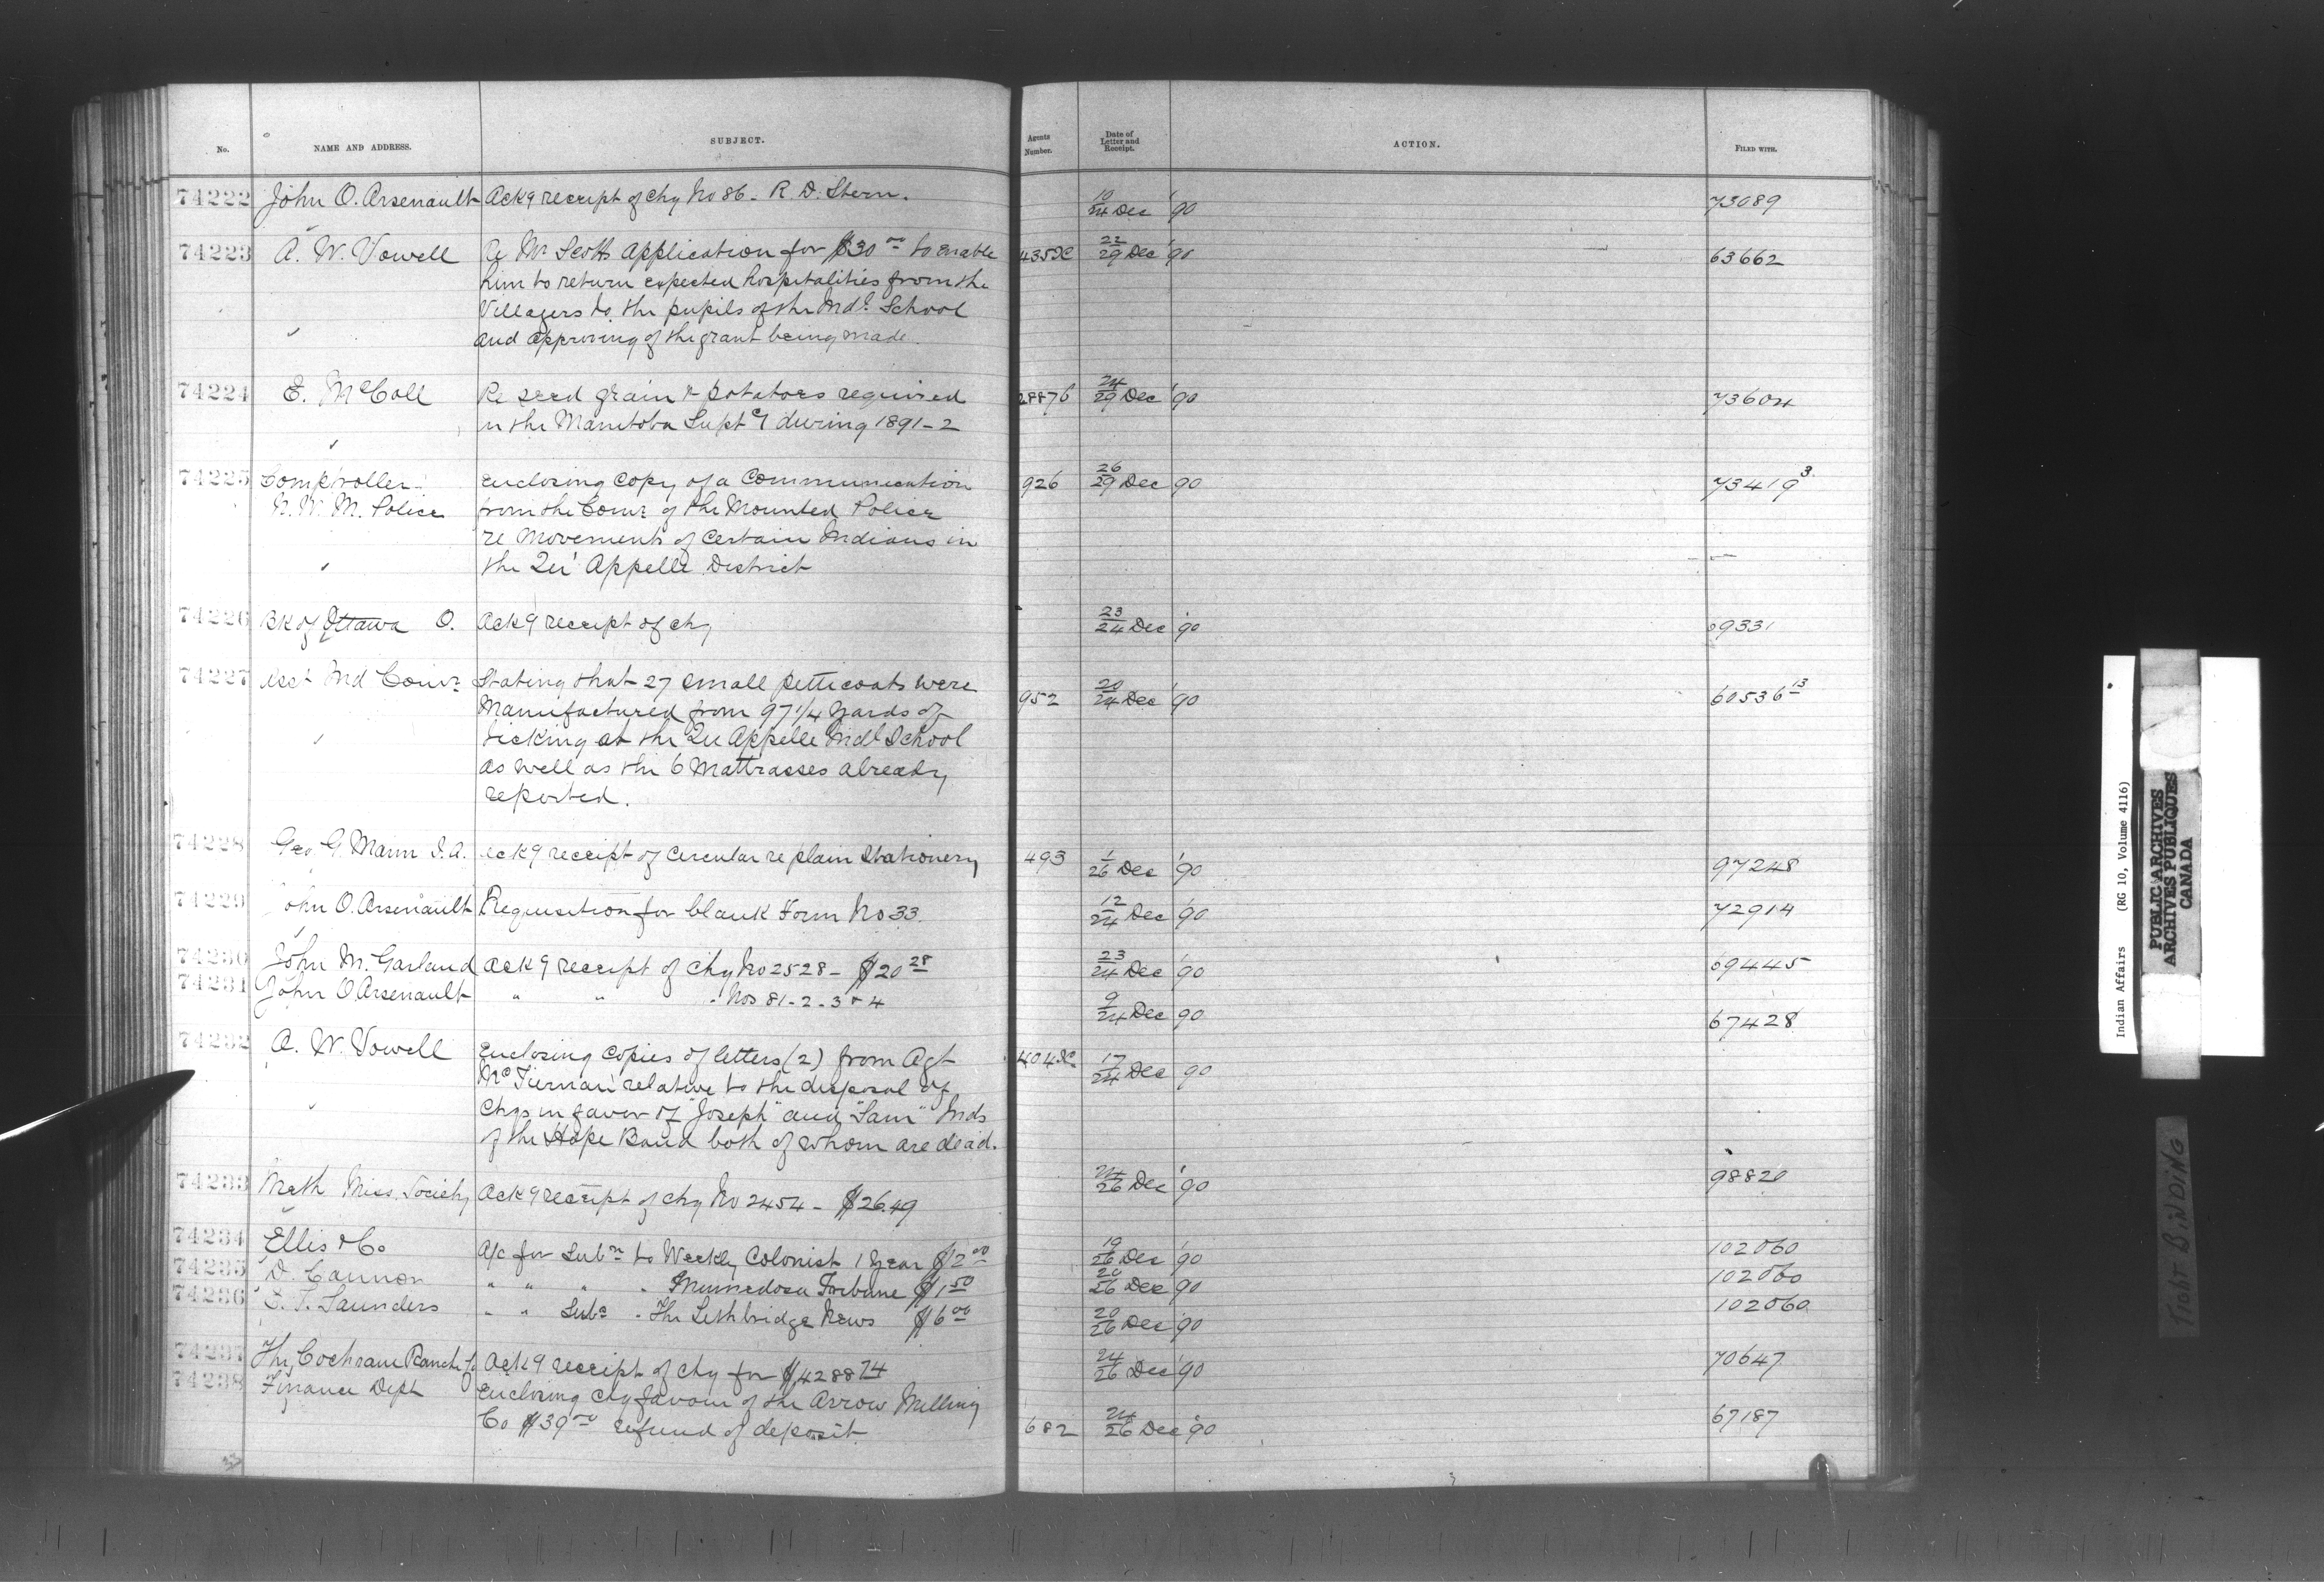 No. NAME AND ADDRESS. SUBJECT. Agents Number. Date of Letter and Receipt. ACTION. FILED WITH.
74222 John O. Arsenault Ackg receipt of chq No 86 - R. D. Stern. 10/24 Dec '90 73089
74223 A. W. Vowell Re Mr Scotts application for $30.00 to enable 435 22/29 Dec '90 63662
him to return expected hospitalities from the
Villagers to the pupils of the Indl. School
and approving of the grant being made.
74224 E. McColl Re seed grain & potatoes required 28876 24/29 Dec '90 73604
in the Manitoba Supt cy during 1891-2
74225 Comptroller Enclosing copy of a communication 926 26/29 Dec 90 73419 3
N. W. M. Police from the Comr of the Mounted Police
re movements of certain Indians in
the Qu'Appelle District
74226 Bk of Ottawa O. Ackg receipt of chq 23/24 Dec '90 69331
74227 Asst Ind Comr Stating that 27 small petticoats were 952 20/24 Dec '90 60536 13
manufactured from 97 1/4 yards of
ticking at the Qu Appelle Indl School
as well as the 6 Mattrasses already
reported.
74228 Geo G. Mann I. A. Ackg receipt of circular re plain Stationery 493 1/26 Dec '90 97248
74229 John O. Arsenault Requisition for blank Form No 33. 12/24 Dec '90 72914
74230 John M. Garland Ackg receipt of chq No 2528 - $20 28 23/24 Dec '90 69445
74231 John O. Arsenault " " " Nos 81-2-3 & 4 9/24 Dec 90 67428
74232 A. W. Vowell Enclosing copies of letters (2) from Agt 404 17/24 Dec 90
McTiernan relative to the disposal of
chqs in favor of "Joseph" and "Sam" Inds
of the Hope Band both of whom are dead.
74233 Meth Miss. Society Ackg receipt of chq No 2454 - $26.49 24/26 Dec '90 98820
74234 Ellis & Co A/c for Subn to Weekly Colonist 1 Year $2 00 19/26 Dec '90 102060
74235 D. Cannon " " " " Minnedosa Tribune $1 50 20/26 Dec '90 102060
74236 E. T. Saunders " " Subs " The Lethbridge News $6 00 20/26 Dec '90 102060
74237 The Cochrane Ranche Co Ackg receipt of chq for $4288 74 24/26 Dec '90 70647
74238 Finance Dept Enclosing chq favour of the Arrow Milling
Co $39 00 refund of deposit 682 24/26 Dec '90 67187
Indian Affairs (RG 10, Volume 4116)
PUBLIC ARCHIVES
ARCHIVES PUBLIQUES
CANADA
TIGHT BINDING